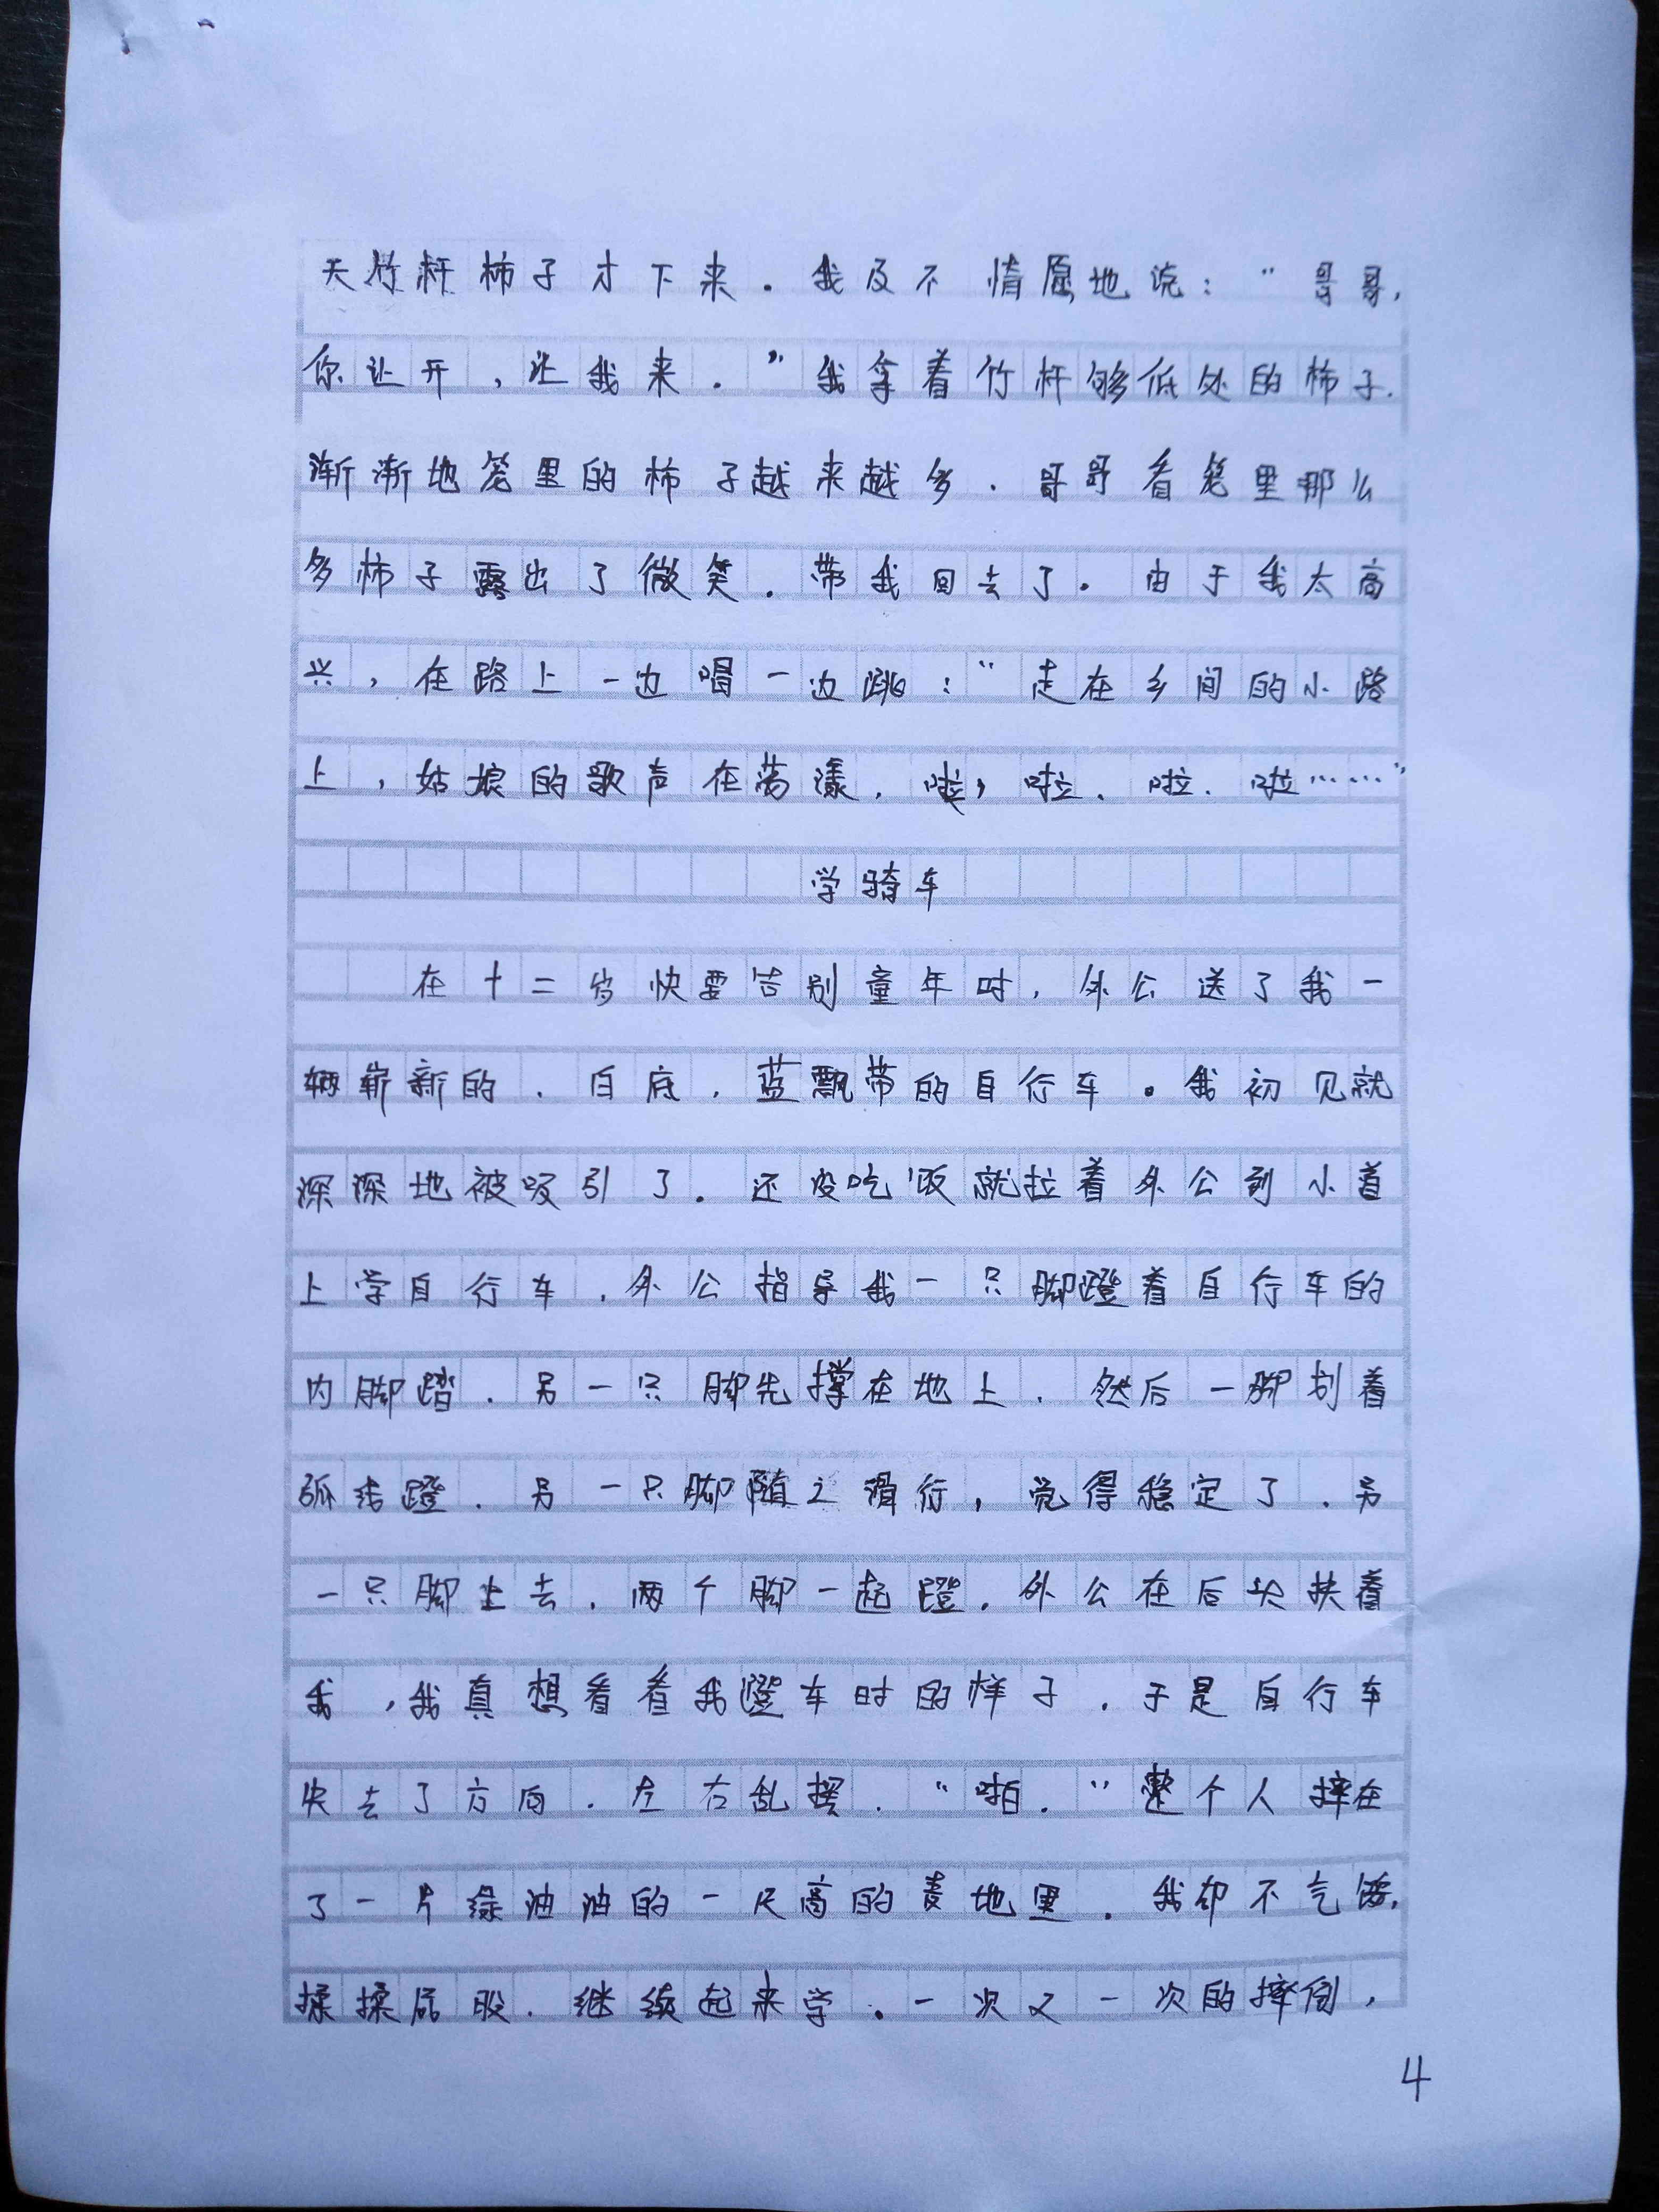 天竹杆柿子才下来.我及不情愿地说："哥哥,
你让开,让我来."我拿着竹杆够低处的柿子.
渐渐地笼里的柿子越来越多.哥哥看笼里那么
多柿子露出了微笑.带我回去了。由于我太高
兴,在路上一边唱一边跳："走在乡间的小路
上,姑娘的歌声在荡漾.啦,啦.啦.啦……"
学骑车
在十二岁快要告别童年时,外公送了我一
辆崭新的.白底.蓝飘带的自行车。我初见就
深深地被吸引了.还没吃饭就拉着外公到小道
上学自行车.外公指导我一只脚蹬着自行车的
内脚踏.另一只脚先撑在地上.然后一脚划着
弧线蹬.另一只脚随之滑行,觉得稳定了.另
一只脚上去.两个脚一起蹬.外公在后头扶着
我,我真想看看我蹬车时的样子.于是自行车
失去了方向.左右乱摆."啪."整个人摔在
了一片绿油油的一尺高的麦地里.我却不气馁.
揉揉屁股.继续起来学。一次又一次的摔倒,
4